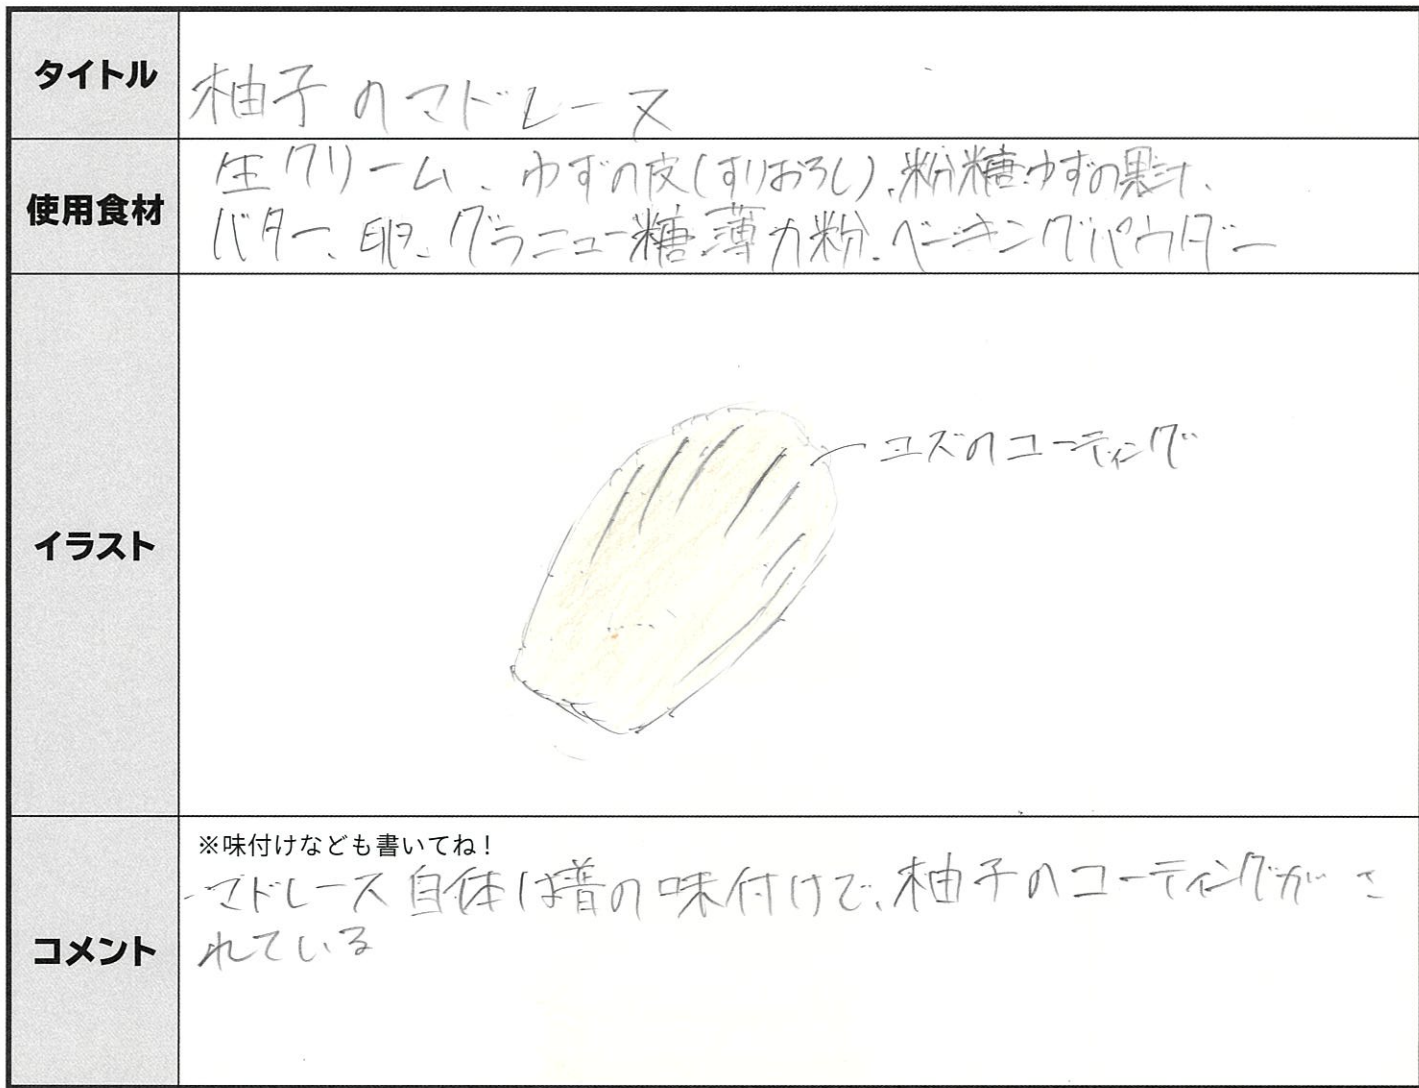 タイトル
柚子のマドレーヌ
使用食材
生クリーム、ゆずの皮(すりおろし)、粉糖、ゆずの果汁、
バター、卵、グラニュー糖、薄力粉、ベーキングパウダー
イラスト
ユズのコーティング
コメント
※味付けなども書いてね!
マドレーヌ自体は普の味付けで、柚子のコーティングがさ
れている